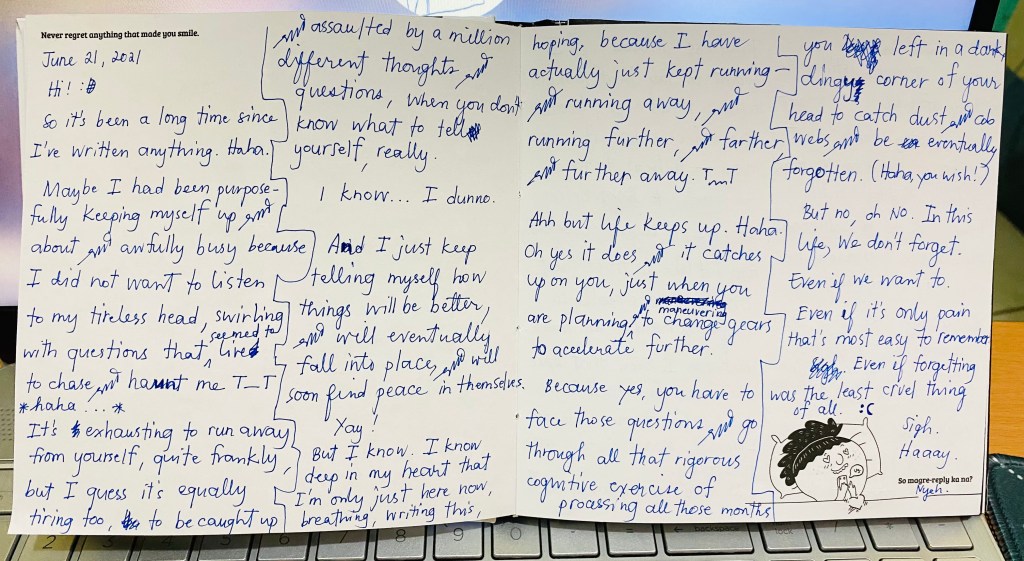 Never regret anything that made you smile.
June 21, 2021
Hi! :B
So it's been a long time since
I've written anything. Haha.
Maybe I had been purpose-
fully keeping myself up and
about and awfully busy because
I did not want to listen
to my tireless head, swirling
with questions that seemed to live
to chase and haunt me T_T
*haha...*
It's exhausting to run away
from yourself, quite frankly,
but I guess it's equally
tiring too, to be caught up
and assaulted by a million
different thoughts and
questions, when you don't
know what to tell
yourself, really.
I know... I dunno.
And I just keep
telling myself how
things will be better,
and will eventually
fall into place, and will
soon find peace in themselves.
Yay!
But I know. I know
deep in my heart that
I'm only just here now,
breathing, writing this,
hoping, because I have
actually just kept running -
and running away, and
running further, and farther
and further away. T_T
Ahh but life keeps up. Haha.
Oh yes it does and it catches
up on you, just when you
are planning and maneuvering to change gears
to acelerate further.
Because yes, you have to
face those questions and go
through all that rigorous
cognitive exercise of
processing all those months
you left in a dark,
dingy corner of your
head to catch dust and cob
webs, and be eventually
forgotten. (Haha, you wish!)
But no, oh no. In this
life, we don't forget.
Even if we want to.
Even if it's only pain
that's most easy to remember.
Even if forgetting
was the least cruel thing
of all. :C
Sigh.
Haaay.
So magre-reply ka na?
Nyeh.
2
3
6
8
9
0
backspace